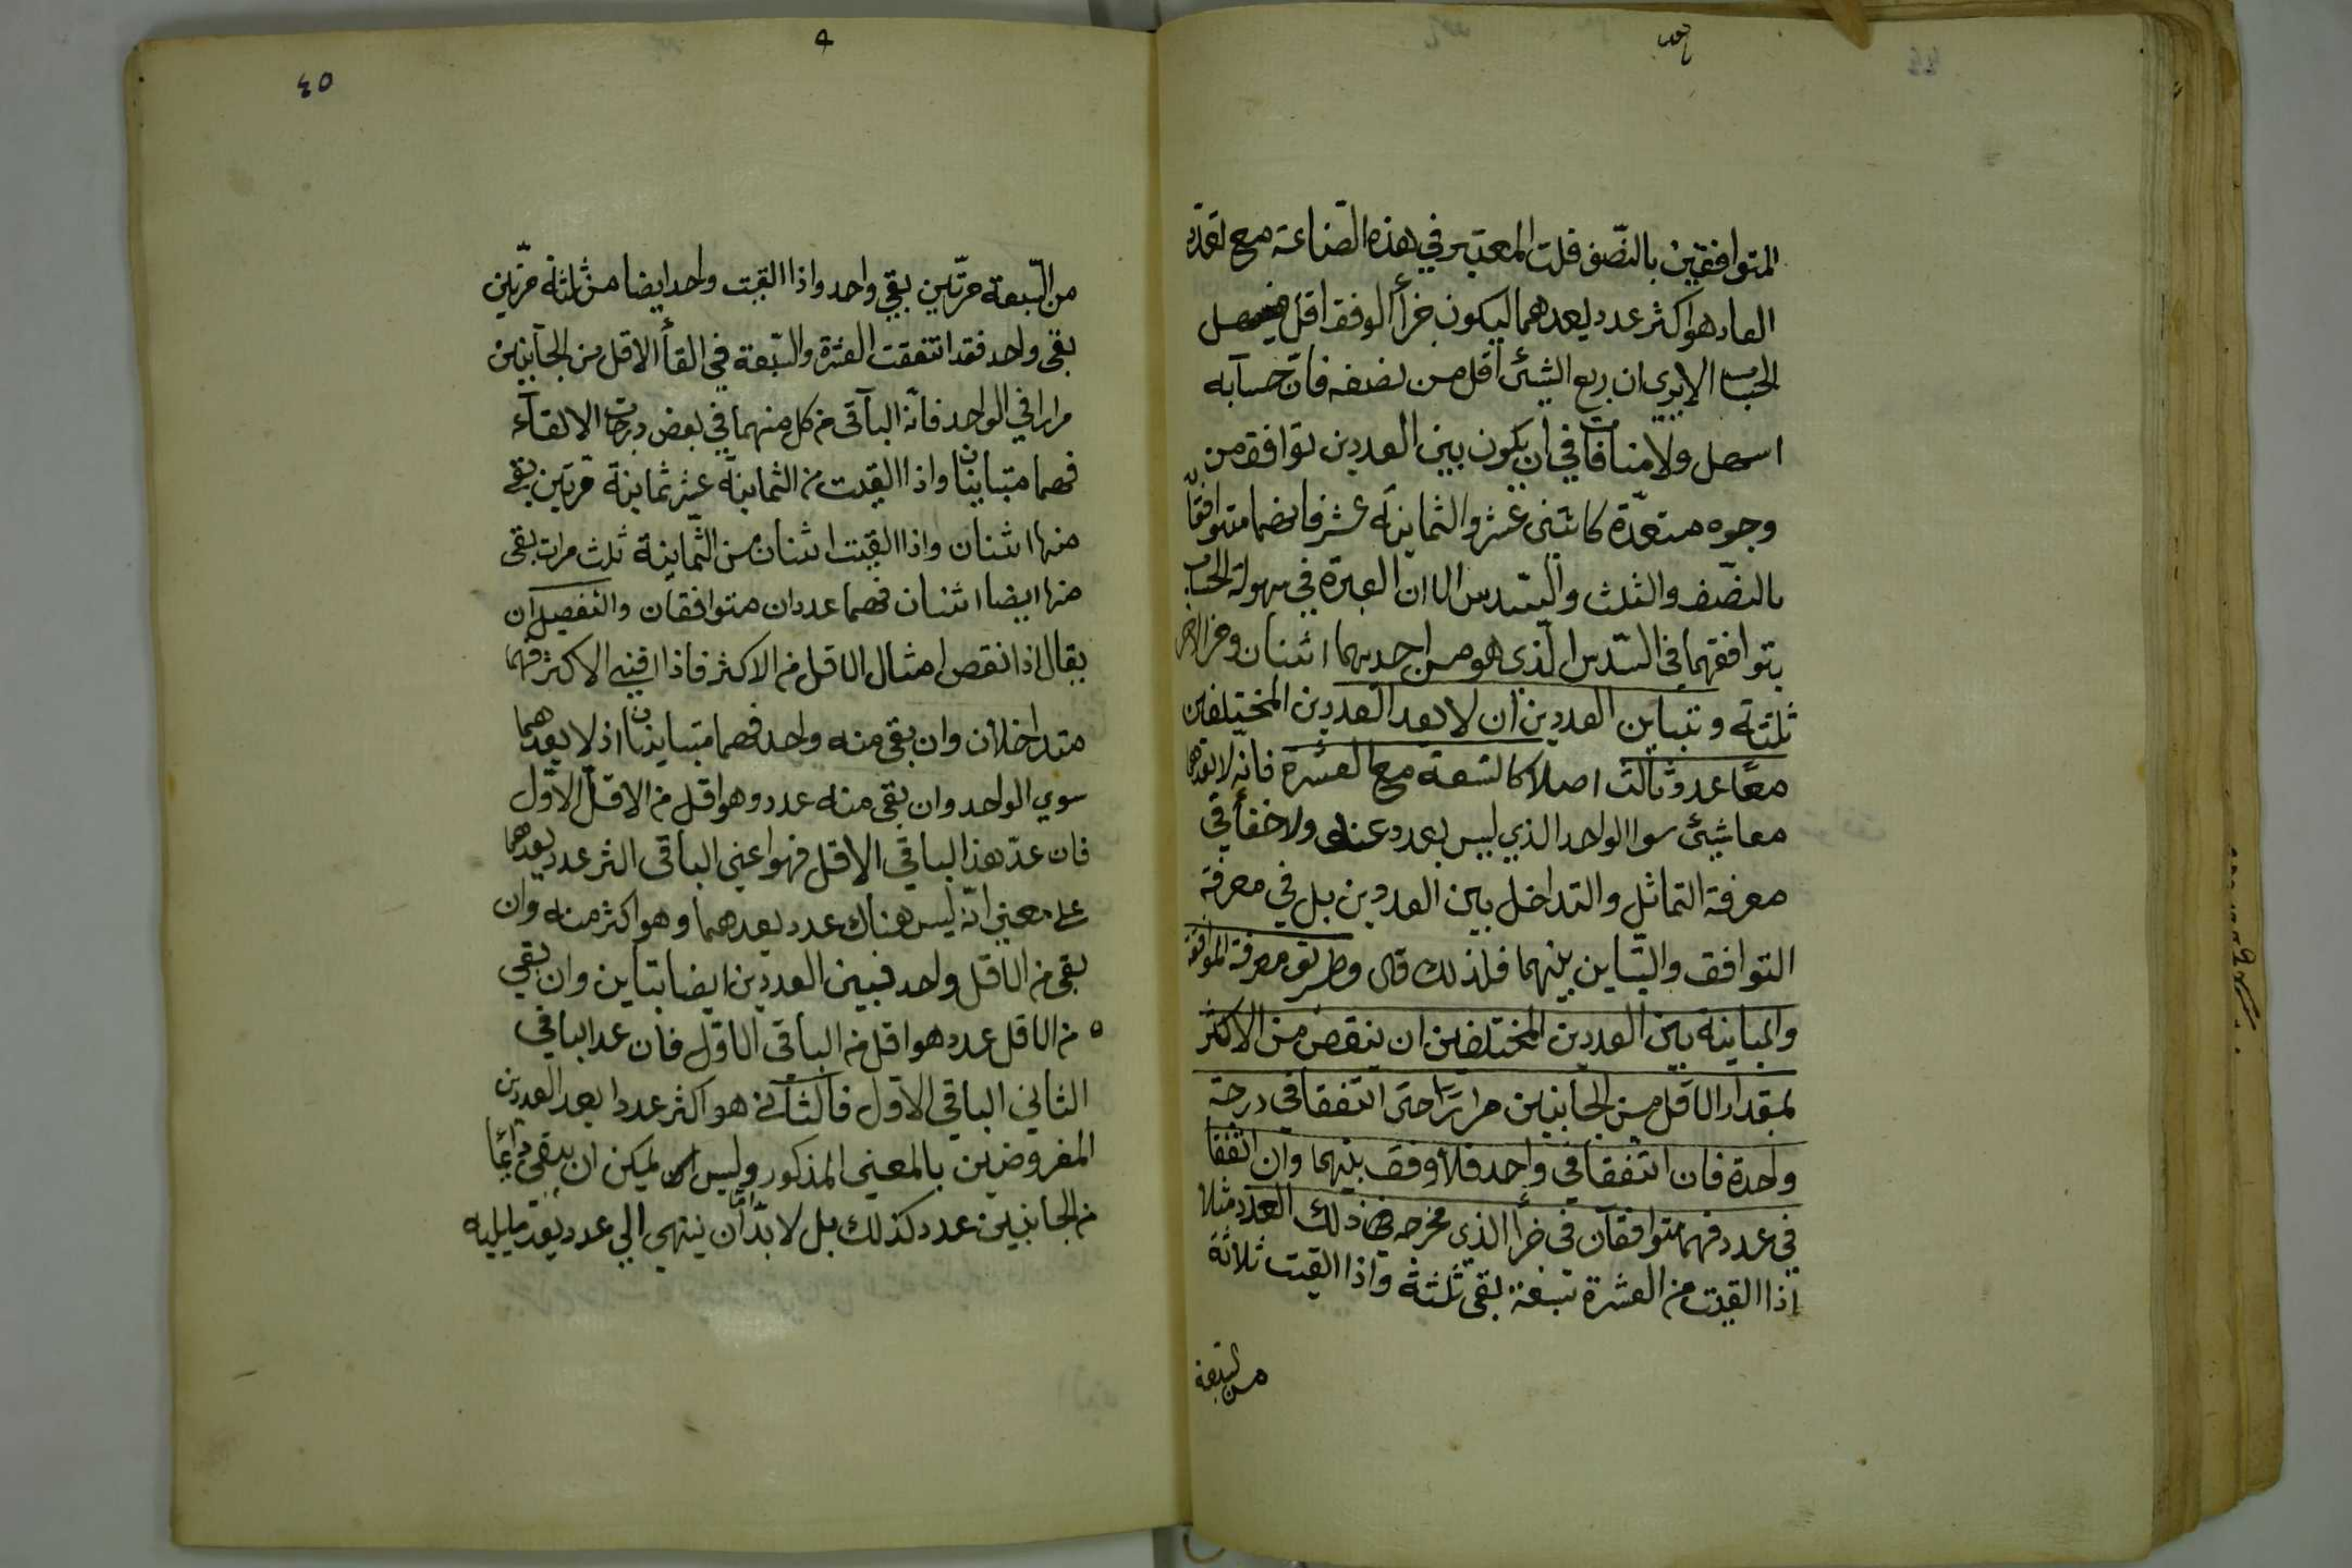 المتوافقين بالنّصف قلت المعتبر في هذه الصّناعة مع تعدّد
العاد هو اكثر عدد يعدهما ليكون جزأ الوفق اقل فيسهل
الحساب الا يري ان ربع الشيئ اقل من نصفه فانّ حسابه
اسهل ولا منافات في ان يكون بين العددين توافق من
وجوه متعدّدة كاثني عشر والثمانية عشر فانهما متوافقان
بالنصّف والثلث والسّدس الا ان العبرة في سهولة الحساب
بتوافقهما في السّدس الّذي هو من احديهما اثنان ومن الاخر
ثلثة وتباين العددين ان لا يعد العددين المختلفين
معًا عدد ثالث اصلا كالتسعة مع العشرة فانّه لا يعدهما
معا شيئ سوا الواحد الذي ليس بعدد عنده ولا خفأ في
معرفة التماثل والتداخل بين العددين بل في معرفة
التوافق والتّباين بينهما فلذلك قال وطريق معرفة الموافقة
والمباينة بين العددين المختلفين ان ينقص من الاكثر
بمقدار الاقل من الجانبين مرارًا حتى اتفقا في درجة
واحدة فان اتفقا في واحد فلا وفق بينهما وان اتفقا
في عدد فهما متوافقان في جزأ الذي مخرجه ذلك العدد مثلا
اذا القيت من العشرة سبعة بقي ثلثة واذا القيت ثلاثة
من السّبعة
٤٥
من السّبعة مرّتين بقي واحد واذا القيت واحد ايضا من ثلثة مرّتين
بقي واحد فقد اتفقت العشرة والسّبعة في القأ الاقل من الجانبين
مرارا في الواحد فانّه الباقي من كل منهما في بعض درجات الالقآء
فهما متباينان واذا القيت من الثمانية عشر ثمانية مرّتين بقي
منها اثنان واذا القيت اثنان من الثّمانية ثلث مرات بقي
منها ايضا اثنان فهما عددان متوافقان والتفصيل ان
يقال اذا نقص امثال الاقل من الاكثر فاذا افني الاكثر فهما
متداخلان وان بقي منه واحد فهما متباينان اذ لا يعدهما
سوي الواحد وان بقي منه عدد وهو اقل من الاقل الاوّل
فان عدّ هذا الباقي الاقل فهو اعني الباقي اكثر عدد يعدهما
علي معني انّه ليس هناك عدد يعدهما وهو اكثر منه وان
بقي من الاقل واحد فبين العددين ايضا تباين وان بقي
من الاقل عدد هو اقل من الباقي الاول فان عد الباقي
الثاني الباقي الاول فالثاني هو اكثر عددا يعد العددين
المفروضين بالمعني المذكور وليس يمكن ان يبقي دائمًا
من الجانبين عدد كذلك بل لا بدّ ان ينتهي الي عدد يعدّ ما يليه